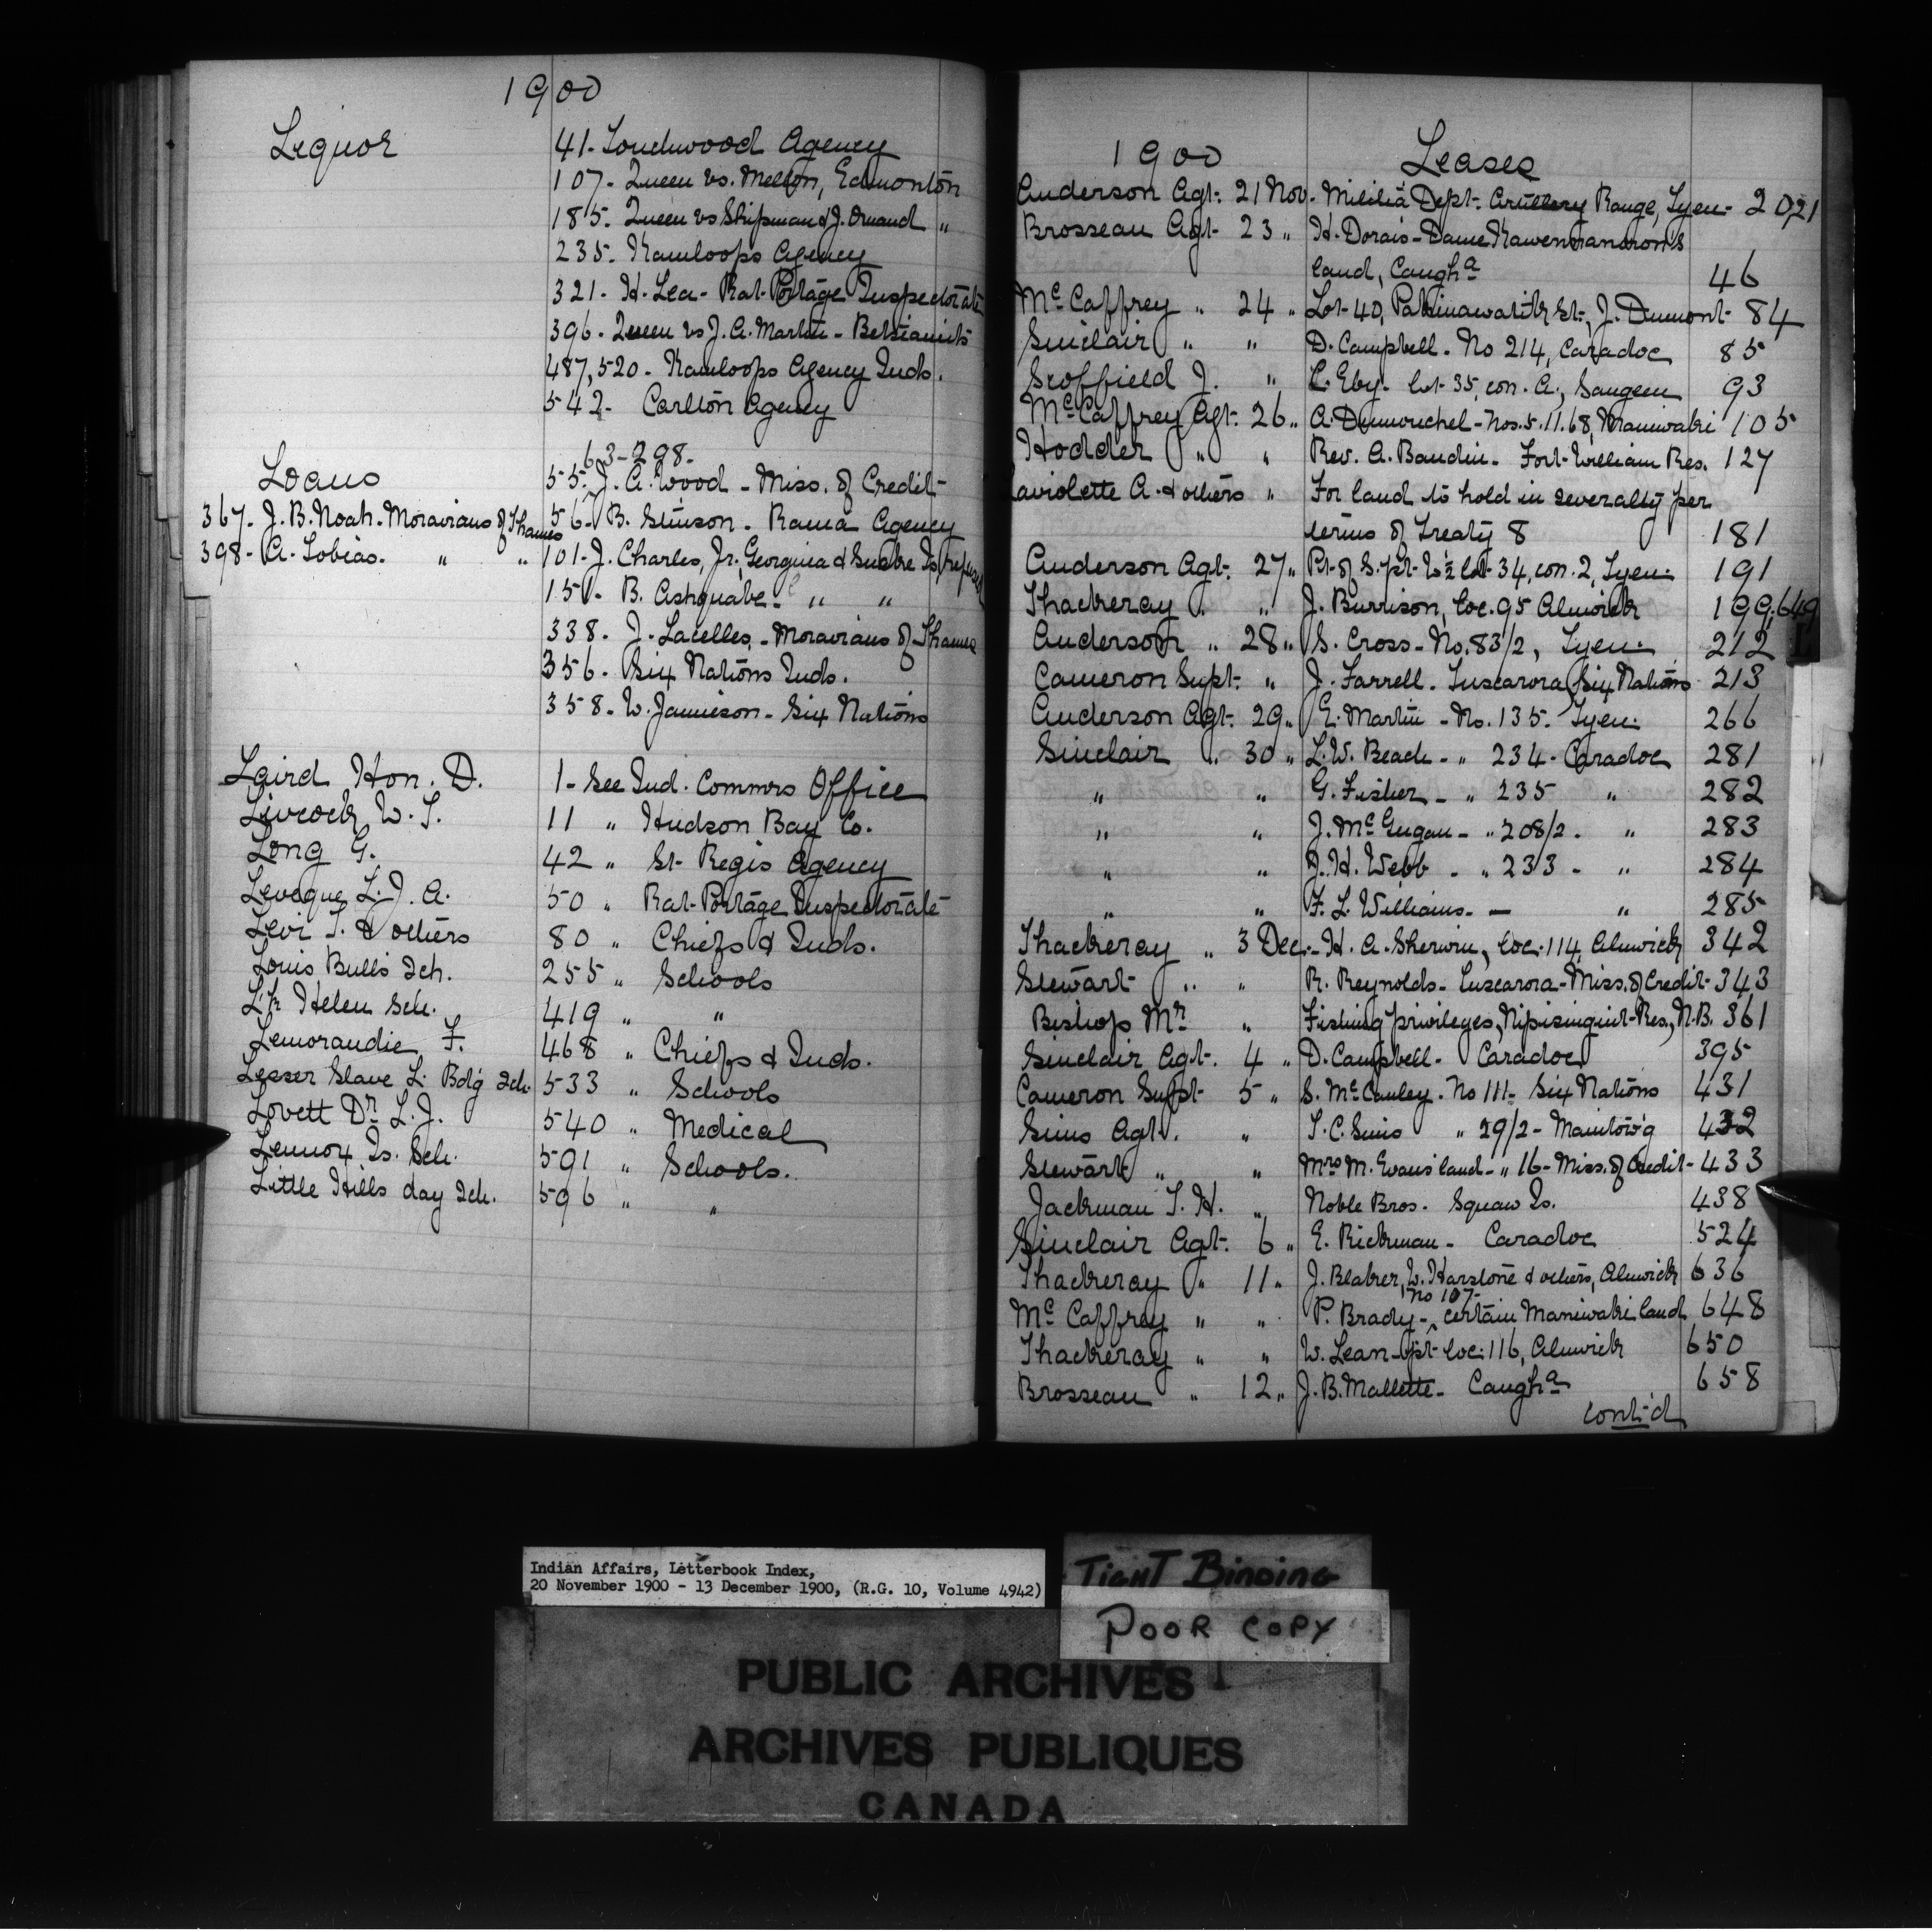 1900
Liquor
41- Touchwood Agency
107- Queen vs. Mellon, Edmonton
185- Queen vs Shipman & J. Omand "
235- Kamloops Agency
321- H. Lea - Rat-Portage Inspectorate
396- Queen vs J. A. Martin - Betsiamits
487,520- Kamloops Agency Inds.
542- Carlton Agency
63-298-
Loans
55- J. A. Wood - Miss. of Credit
367- J. B. Noah- Moravians of Thames
56- B. Stinson - Rama Agency
398- A. Tobias. " "
101- J. Charles, Jr., Georgina & Snake Is
151- B. Ashquabe- " "
338- J. Lacelles, - Moravians of Thames
356- Six Nations Inds.
358- W. Jamieson - Six Nations
Laird Hon. D. 1- See Ind. Commrs Office
Livcock W. T. 11 " Hudson Bay Co.
Long G. 42 " St- Regis Agency
Leveque L. J. A. 50 " Rat-Portage Inspectorate
Levi T. & others 80 " Chiefs & Inds.
Louis Bull's Sch. 255 " Schools
L. Helen Sch. 419 " "
Lemorandie F. 468 " Chiefs & Inds.
Lesser Slave L. Bdg Sch. 533 " Schools
Lovett Dr L. J. 540 " Medical
Lennox Is. Sch. 591 " Schools.
Little Hills day Sch. 596 " "
1900 Leases
Anderson Agt. 21 Nov. Militia Dept. Artillery Range, Tyen- 20,21
Brosseau Agt- 23 " H. Dorais - Dame
land, Caugha 46
McCaffrey " 24 " Lot-40, St., J. Dumont- 84
Sinclair " " D. Campbell - No 214, Caradoc 85
Scoffield J. " C. Eby- lot-35, con. A., Saugeen 93
McCaffrey Agt. 26 " A. Dumouchel - Nos. 5. 11. 68, Maniwaki 105
Hodder " " Rev. A. Baudin - Fort-William Res. 127
Laviolette A. & others " For land to hold in severalty per
terms of Treaty 8 181
Anderson Agt. 27 " Pt- of S. pt- W½ lot-34, con. 2, Tyen. 191
Thackeray " " J. Burrison, loc. 95 Alnwick 199,649
Anderson " 28 " S. Cross - No. 83/2, Tyen. 212
Cameron Supt. " J. Farrell - Tuscarora (Six Nations 213
Anderson Agt. 29 " E. Martin - No. 135. Tyen. 266
Sinclair " 30 " L. W. Beach - " 234 - Caradoc 281
" " G. Fisher - " 235 " 282
" " J. McGugan - " 208/2 - " 283
" " J. H. Webb - " 233 - " 284
" " F. L. Williams - — " 285
Thackeray " 3 Dec.- H. A. Sherwin, loc. 114, Alnwick 342
Stewart " " R. Reynolds - Tuscarora - Miss. of Credit- 343
Bishop Mr " Fishing privileges, Nipisinguit-Res., N.B. 361
Sinclair Agt. 4 " D. Campbell - Caradoc 395
Cameron Supt- 5 " S. McCauley - No 111- Six Nations 431
Sims Agt. " T. C. Sims " 29/2 - Manitow'g 432
Stewart " " Mrs M. Evans' land - " 16 - Miss. of Credit- 433
Jackman T. H. " Noble Bros. Squaw Is. 438
Sinclair Agt. 6 " E. Rickman - Caradoc 524
Thackeray " 11 " J. Blaker, W. Harstone & others, Alnwick 636
No 107-
McCaffrey " " P. Brady - certain Maniwaki land 648
Thackeray " " W. Lean - pt- loc. 116, Alnwick 650
Brosseau " 12 " J. B. Mallette - Caugha 658
cont'd
L
Indian Affairs, Letterbook Index,
20 November 1900 - 13 December 1900, (R.G. 10, Volume 4942)
TIGHT BINDING
POOR COPY
PUBLIC ARCHIVES
ARCHIVES PUBLIQUES
CANADA